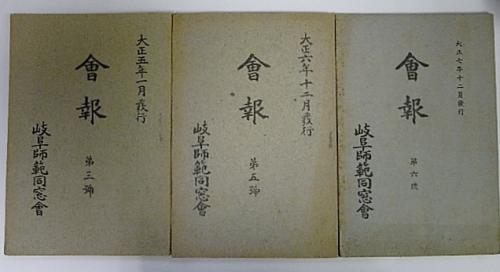 大正五年一月發行
會報
第三號
岐阜師範同窓會
大正六年十二月發行
會報
第五號
岐阜師範同窓會
大正七年十二月發行
會報
第六號
岐阜師範同窓會